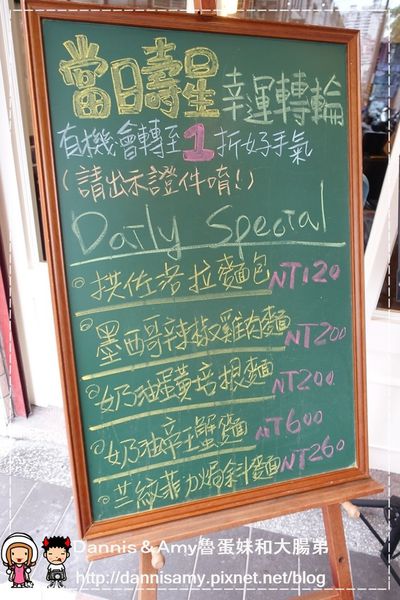 當日壽星幸運轉輪
有機會轉至1折好手氣
(請出示證件唷!)
Daily Special
拱佐洛拉麵包 NT120
墨西哥辣椒雞肉麵 NT200
奶油蛋黃培根麵 NT200
奶油帝王蟹麵 NT600
兰紋菲力焗斜麵 NT260
Dannis & Amy魯蛋妹和大腸弟
http://dannisamy.pixnet.net/blog